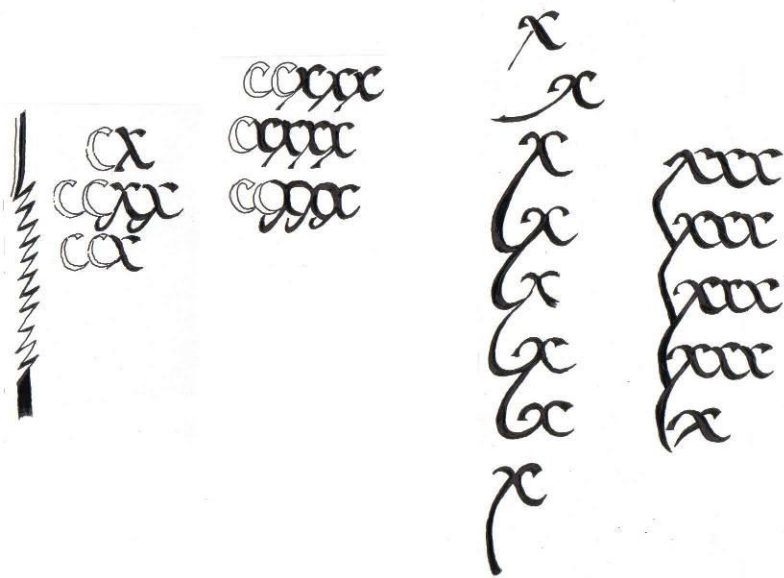 CX
CCXX
CCX
CCXXX
CXXXX
CCXXX
X
X
X
X
X
X
X
X
XXX
XXX
XXX
XXX
X